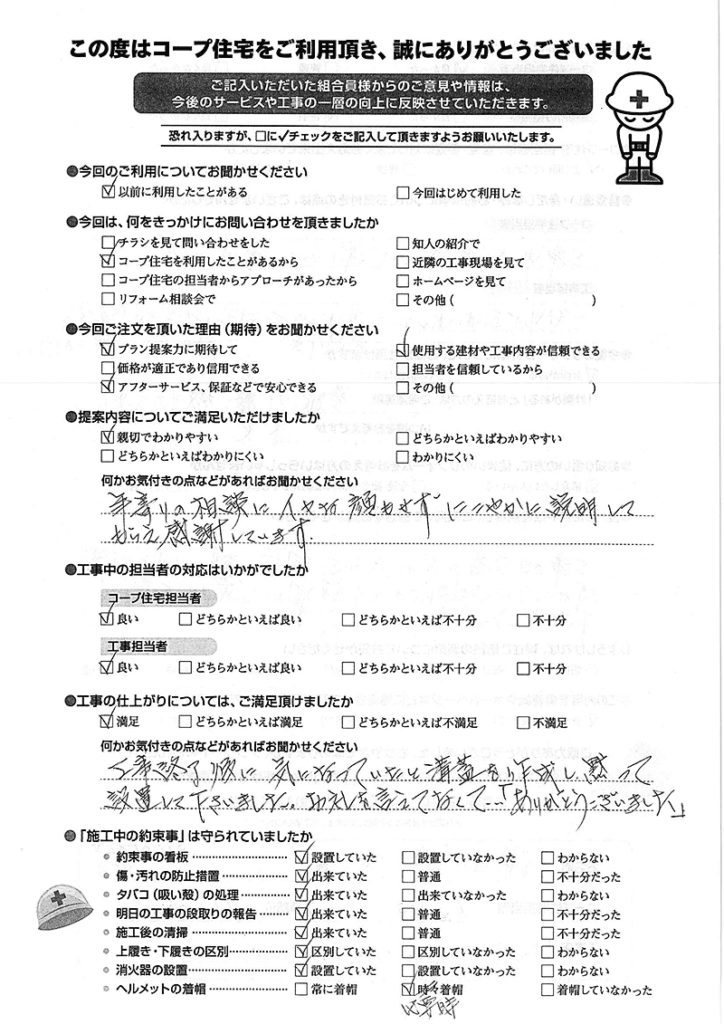 この度はコープ住宅をご利用頂き、誠にありがとうございました
ご記入いただいた組合員様からのご意見や情報は、
今後のサービスや工事の一層の向上に反映させていただきます。
恐れ入りますが、□に✓チェックをご記入して頂きますようお願いいたします。
●今回のご利用についてお聞かせください
☑以前に利用したことがある □今回はじめて利用した
●今回は、何をきっかけにお問い合わせを頂きましたか
□チラシを見て問い合わせをした □知人の紹介で
☑コープ住宅を利用したことがあるから □近隣の工事現場を見て
□コープ住宅の担当者からアプローチがあったから □ホームページを見て
□リフォーム相談会で □その他( )
●今回ご注文を頂いた理由(期待)をお聞かせください
☑プラン提案力に期待して ☑使用する建材や工事内容が信頼できる
□価格が適正であり信用できる □担当者を信頼しているから
☑アフターサービス、保証などで安心できる □その他( )
●提案内容についてご満足いただけましたか
☑親切でわかりやすい □どちらかといえばわかりやすい
□どちらかといえばわかりにくい □わかりにくい
何かお気付きの点などがあればお聞かせください
年寄りの相談にイヤな顔もせずにこやかに説明して
もらえ感謝しています.
●工事中の担当者の対応はいかがでしたか
コープ住宅担当者
☑良い □どちらかといえば良い □どちらかといえば不十分 □不十分
工事担当者
☑良い □どちらかといえば良い □どちらかといえば不十分 □不十分
●工事の仕上がりについては、ご満足頂けましたか
☑満足 □どちらかといえば満足 □どちらかといえば不満足 □不満足
何かお気付きの点などがあればお聞かせください
工事終了後に気になっていたと溝蓋を作成し黙って
設置して下さいました。お礼を言えてなくて…「ありがとうございました」
●「施工中の約束事」は守られていましたか
約束事の看板 ☑設置していた □設置していなかった □わからない
傷・汚れの防止措置 ☑出来ていた □普通 □不十分だった
タバコ(吸い殻)の処理 ☑出来ていた □出来ていなかった □わからない
明日の工事の段取りの報告 ☑出来ていた □普通 □不十分だった
施工後の清掃 ☑出来ていた □普通 □不十分だった
上履き・下履きの区別 ☑区別していた □区別していなかった □わからない
消火器の設置 ☑設置していた □設置していなかった □わからない
ヘルメットの着帽 □常に着帽 ☑時々着帽 □着帽していなかった
必要時